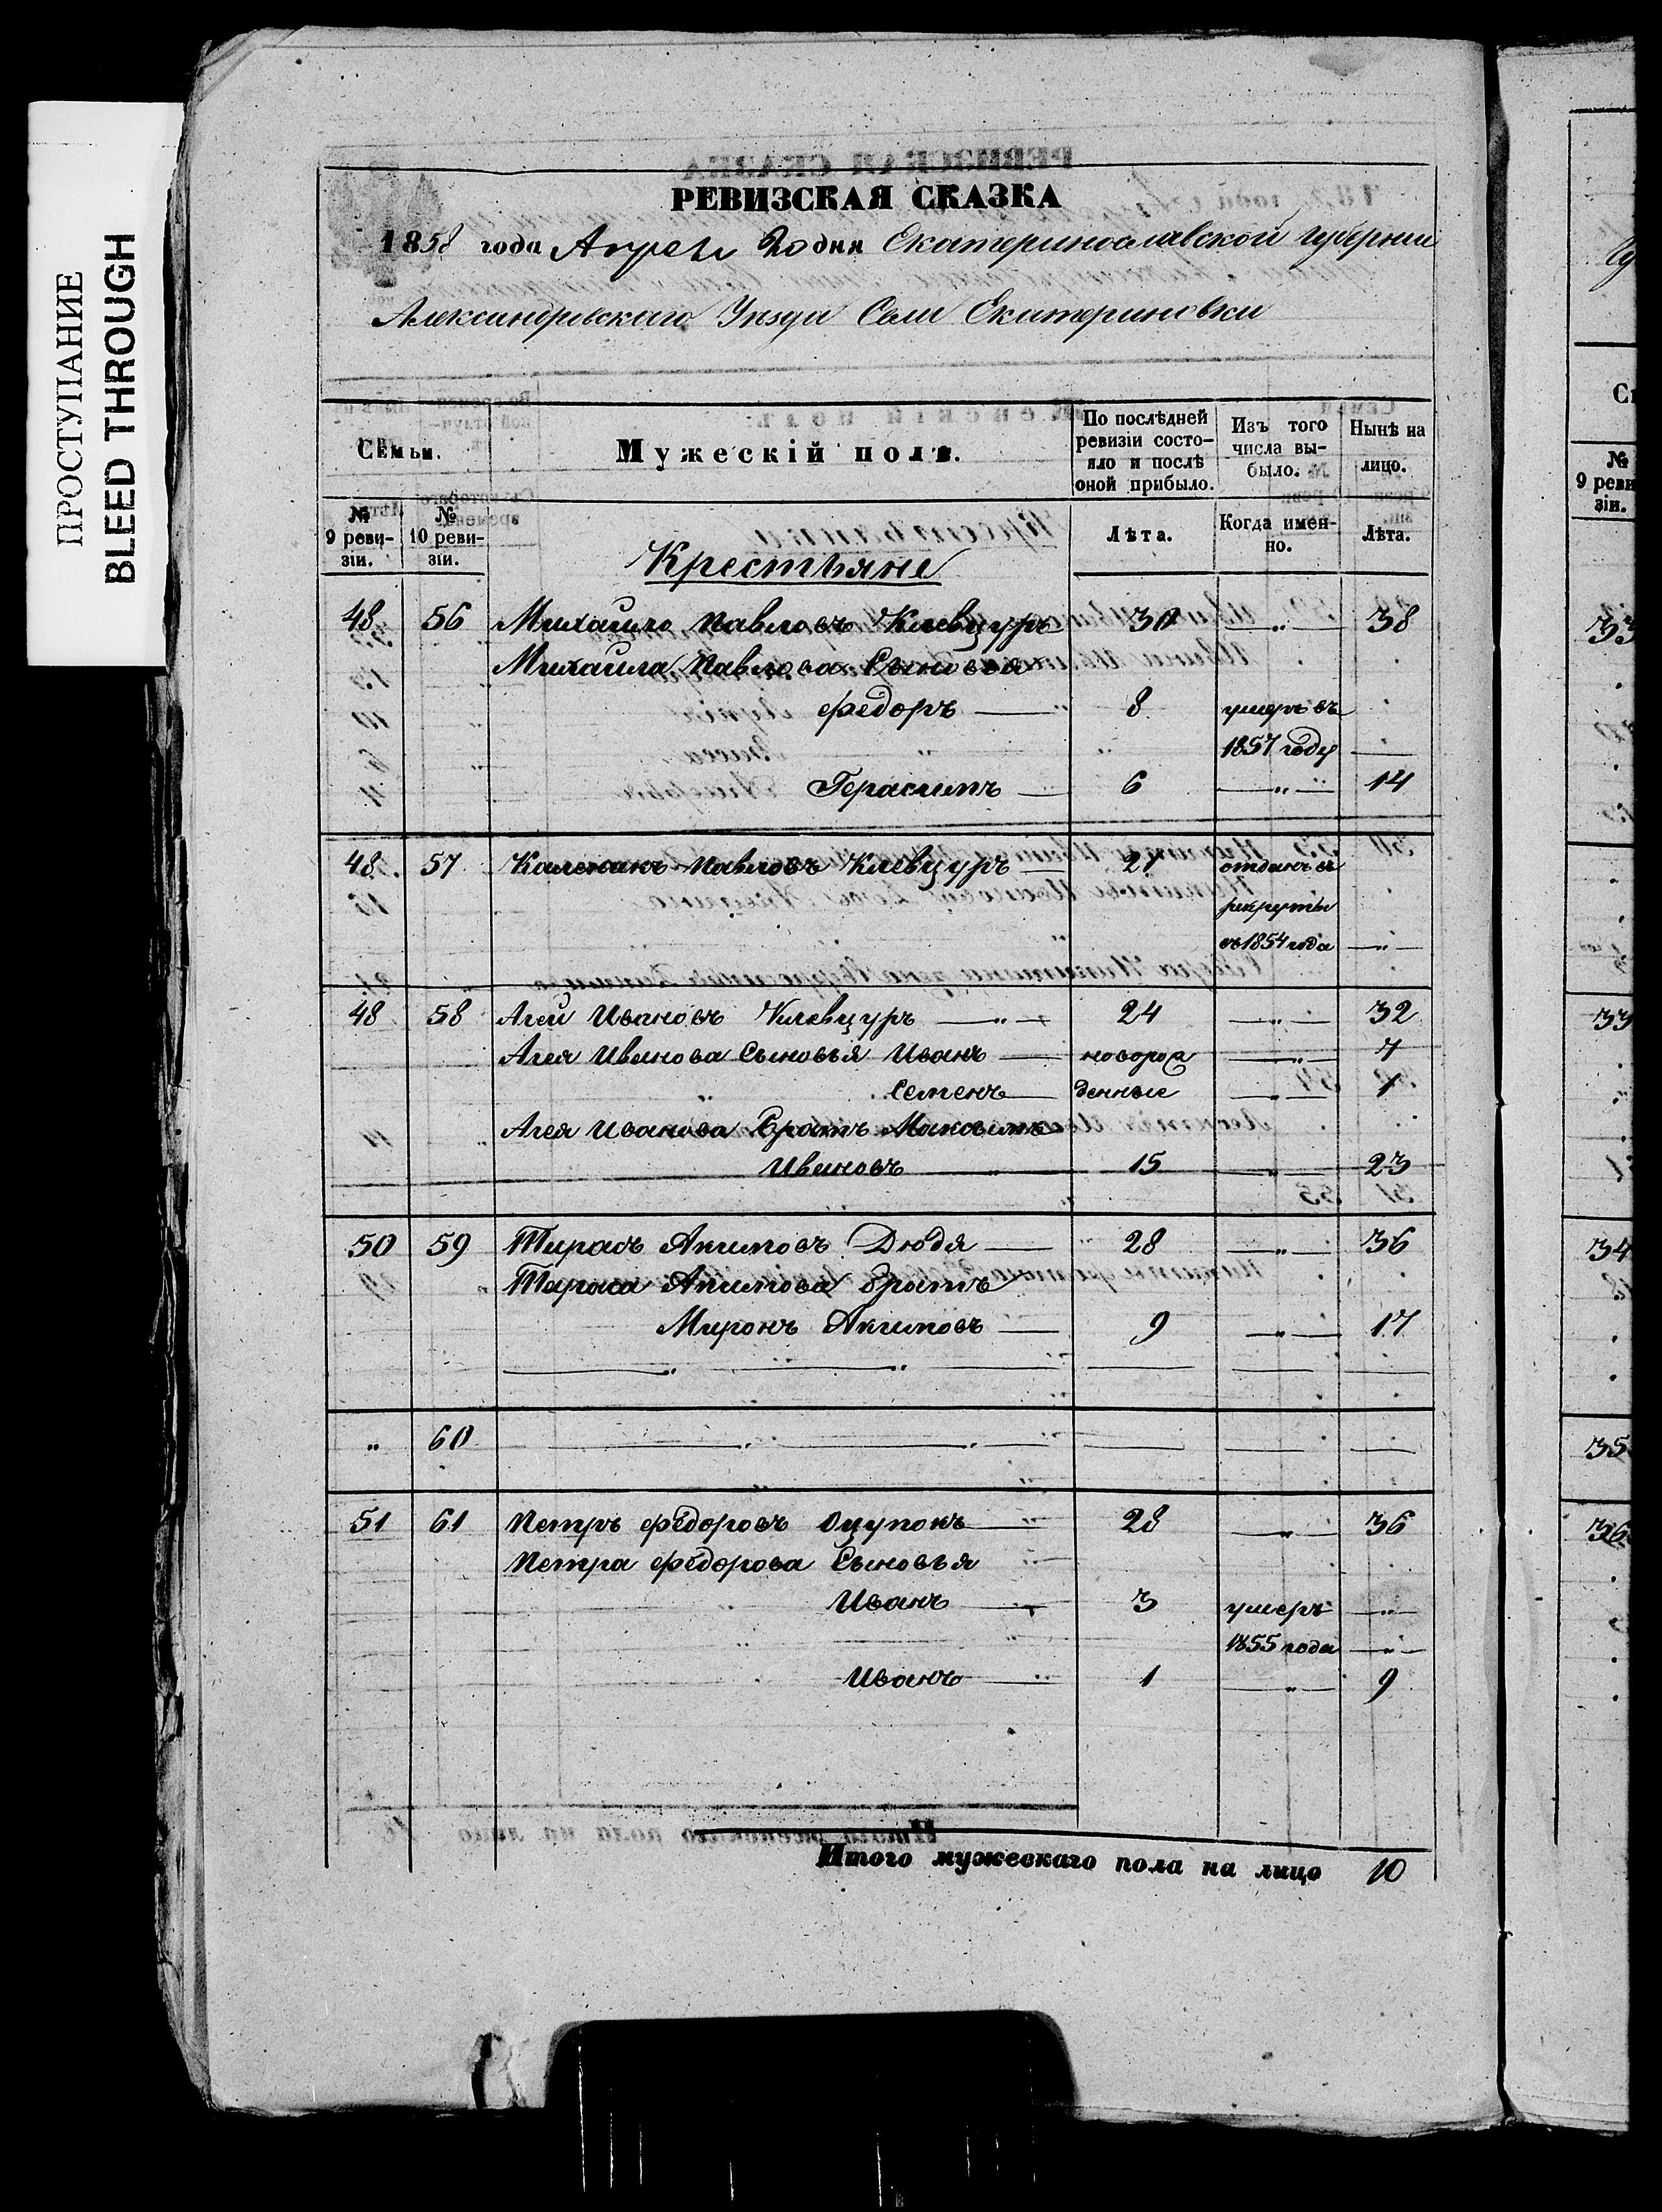 ПРОСТУПАНИЕ
BLEED THROUGH
РЕВИЗСКАЯ СКАЗКА
1858 года Апреля 20 дня Екатеринославской губернии
Александровскаго Уезда Села Екатериновки
Семьи. Мужескій полъ. По послѣдней ревизіи состояло и послѣ оной прибыло. Изъ того числа выбыло. Нынѣ на лицо.
№ 9 ревизіи. № 10 ревизіи. Лѣта. Когда именно. Лѣта.
Крестьяне
48 56 Михайло Павловъ Клевцуръ 30 " 38
Михайла Павлова Сыновья
Федоръ 8 умеръ въ
1857 году
Герасимъ 6 " 14
48 57 Павловъ Клевцуръ 27 отданъ въ
рекруты
въ 1854 года "
48 58 Агей Ивановъ Клевцуръ " 24 " 32
Агея Иванова Сыновья Иванъ новорож " 7
Семенъ денные " 1
Агея Иванова Братъ Максимъ
Ивановъ " 15 " 23
50 59 Тарасъ Акимовъ Дюдя 28 " 36
Тараса Акимова братъ
Миронъ Акимовъ 9 " 17
" 60
51 61 Петръ Федоровъ Оцупокъ 28 " 36
Петра Федорова Сыновья
Иванъ 3 умеръ "
1855 года "
Иванъ 1 " 9
Итого мужескаго пола на лицо 10
№
9 реви-
зіи.
33
33
34
35
36